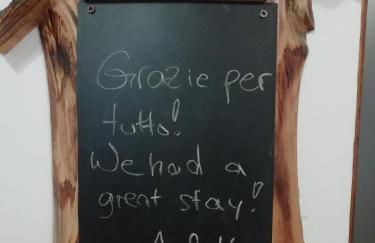 Grazie per
tutto!
We had a
great stay!